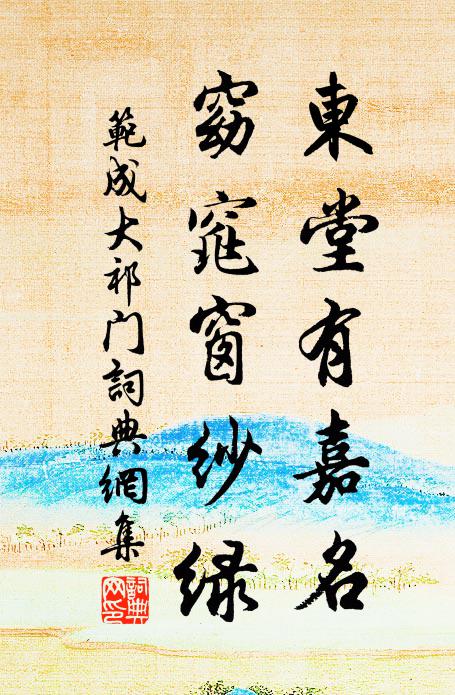 東堂有嘉名
窈窕窗紗緑
範成大祁门詞典網集
詞典网印